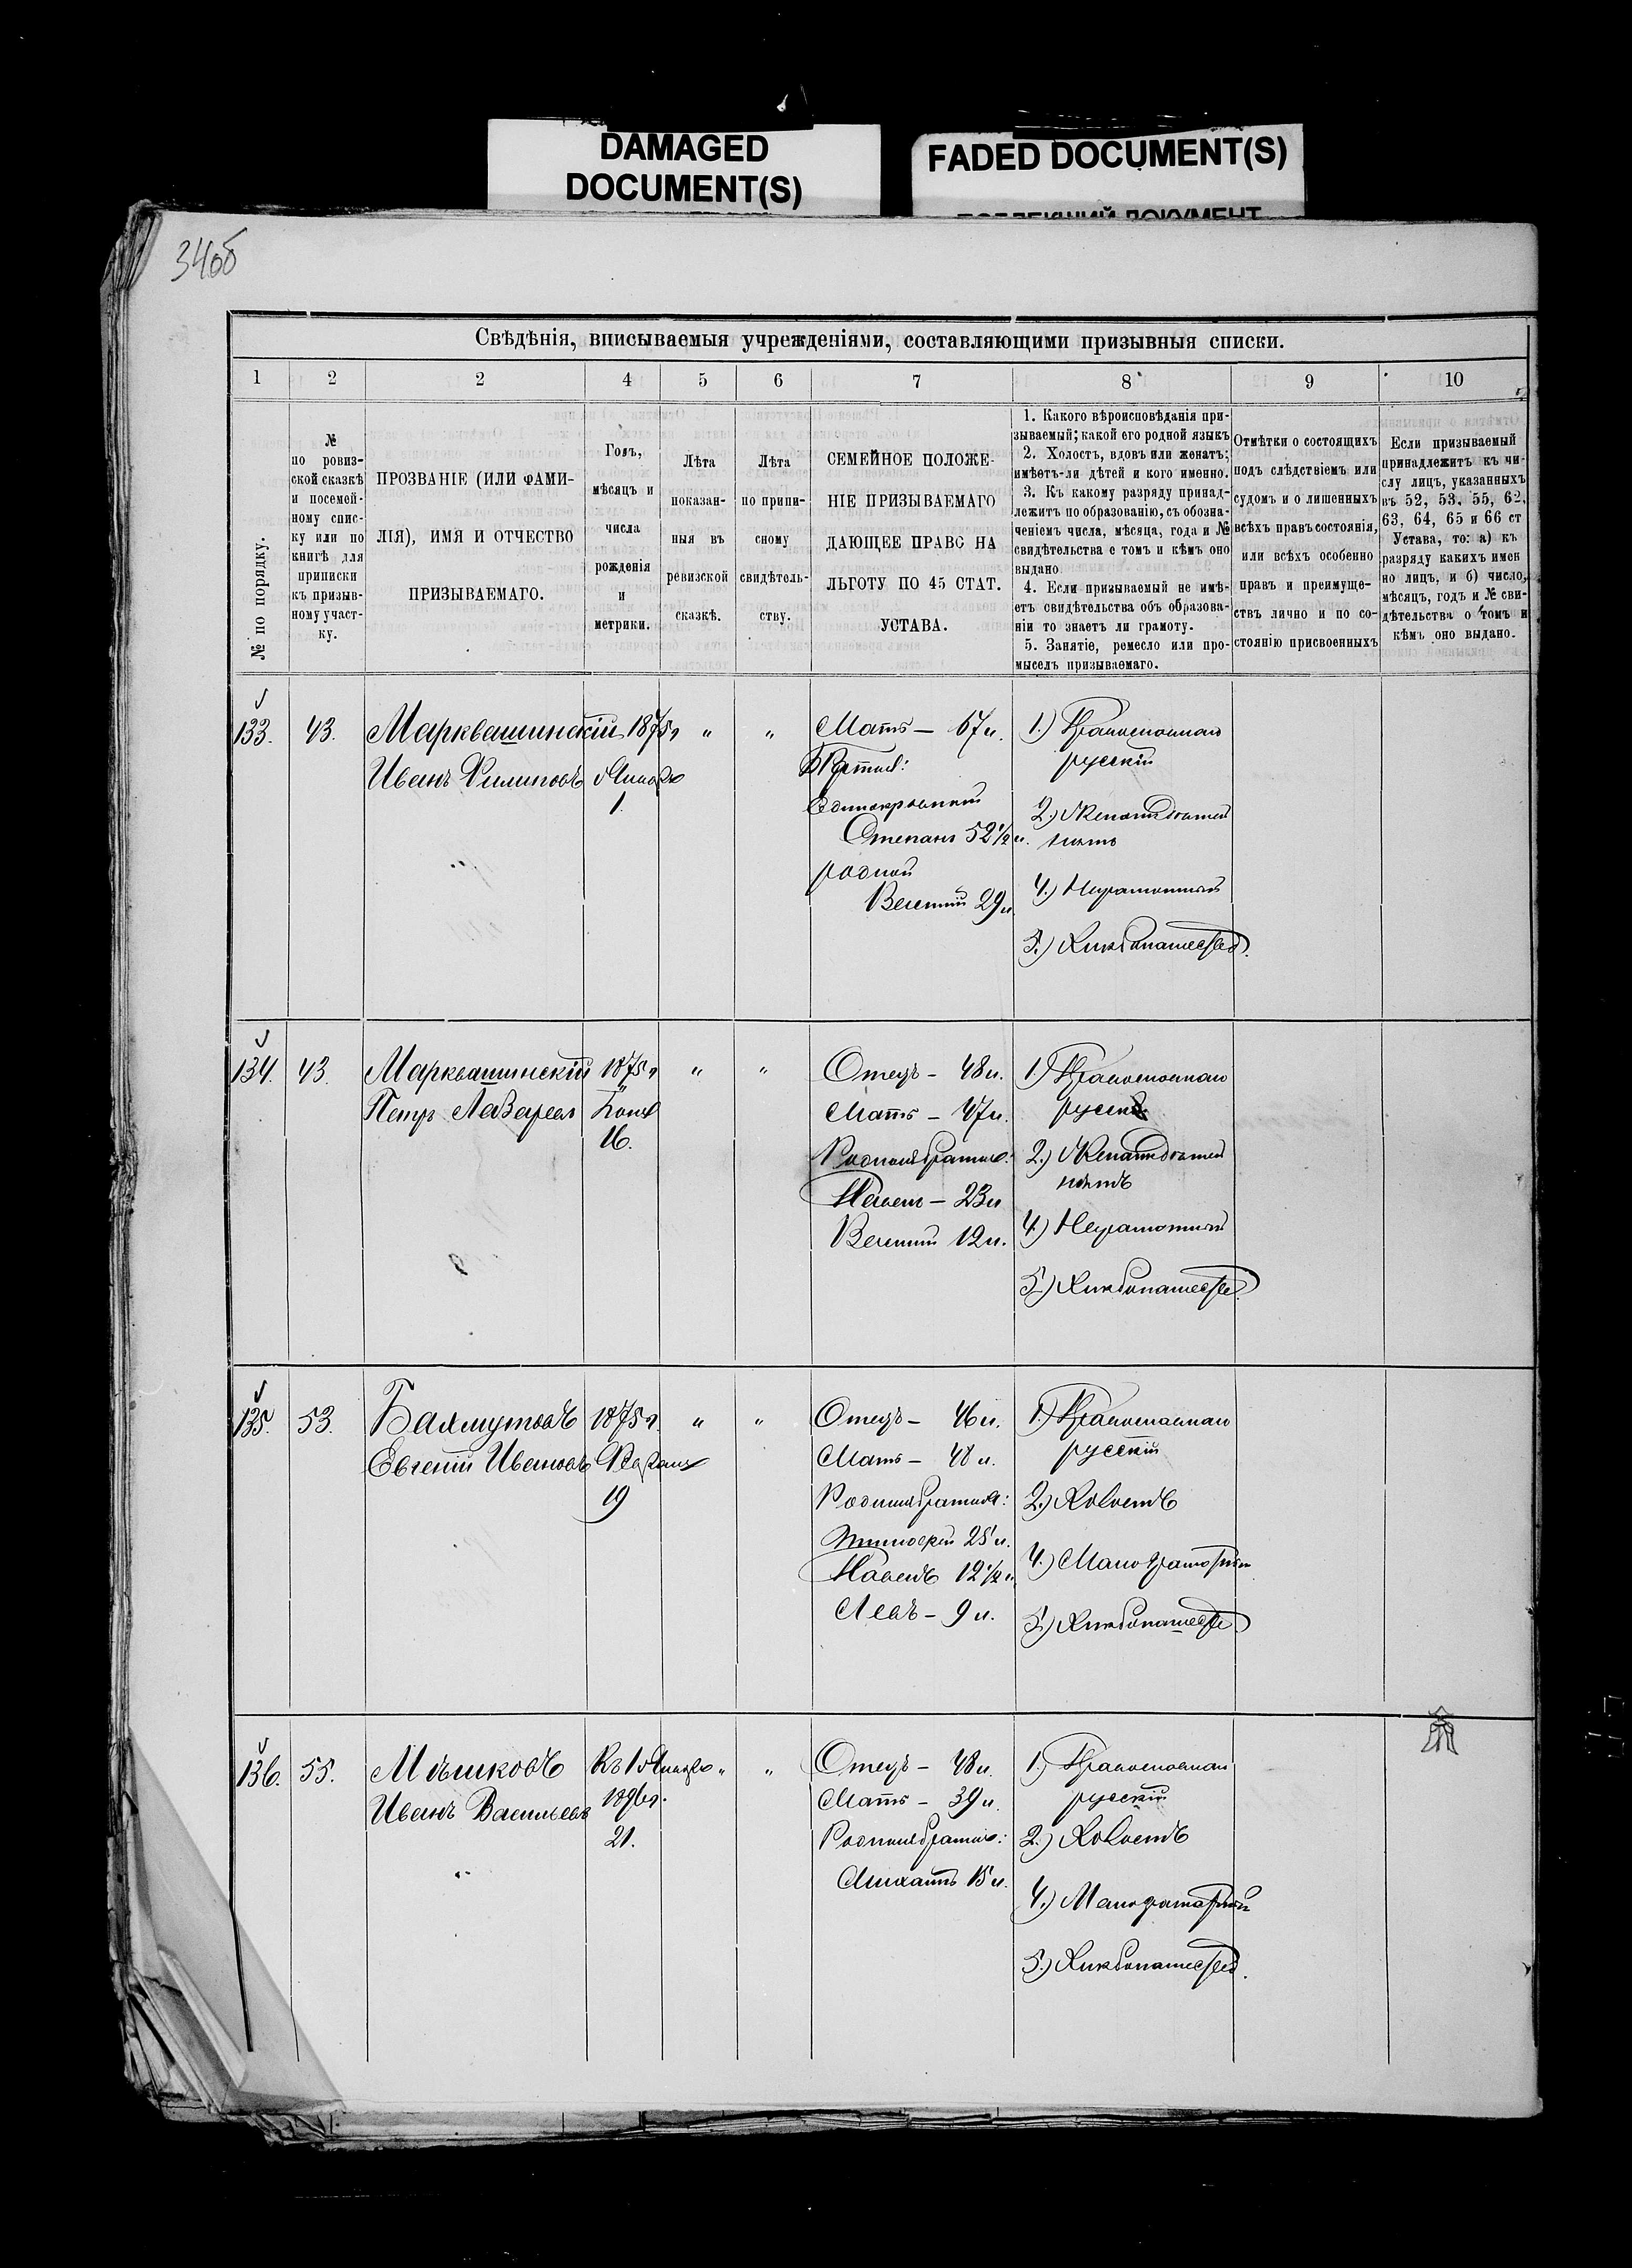 DAMAGED
DOCUMENT(S)
FADED DOCUMENT(S)
34об
Свѣдѣнія, вписываемыя учрежденіями, составляющими призывныя списки.
1 2 2 4 5 6 7 8 9 10
№ по порядку.
№
по ровиз-
ской сказкѣ
и посемей-
ному спис-
ку или по
книгѣ для
приписки
къ призыв-
ному участ-
ку.
ПРОЗВАНІЕ (ИЛИ ФАМИ-
ЛІЯ), ИМЯ И ОТЧЕСТВО
ПРИЗЫВАЕМАГО.
Годъ,
мѣсяцъ и
числа
рожденія
и
метрики.
Лѣта
показан-
ныя въ
ревизской
сказкѣ.
Лѣта
по припи-
сному
свидѣтель-
ству.
СЕМЕЙНОЕ ПОЛОЖЕ-
НІЕ ПРИЗЫВАЕМАГО
ДАЮЩЕЕ ПРАВО НА
ЛЬГОТУ ПО 45 СТАТ.
УСТАВА.
1. Какого вѣроисповѣданія при-
зываемый; какой его родной языкъ
2. Холостъ, вдовъ или женатъ;
имѣетъ-ли дѣтей и кого именно.
3. Къ какому разряду принад-
лежитъ по образованію, съ обозна-
ченіемъ числа, мѣсяца, года и №
свидѣтельства о томъ и кѣмъ оно
выдано
4. Если призываемый не имѣ-
етъ свидѣтельства объ образова-
ніи то знаетъ ли грамоту.
5. Занятіе, ремесло или про-
мыселъ призываемаго.
Отмѣтки о состоящихъ
подъ слѣдствіемъ или
судомъ и о лишенныхъ
всѣхъ правъ состоянія,
или всѣхъ особенно
правъ и преимуще-
ствъ лично и по со-
стоянію присвоенныхъ
Если призываемый
принадлежитъ къ чи-
слу лицъ, указанныхъ
въ 52, 53, 55, 62,
63, 64, 65 и 66 ст
Устава, то: а) къ
разряду какихъ имен
но лицъ, и б) число,
мѣсяцъ, годъ и № сви-
дѣтельства о томъ и
кѣмъ оно выдано.
133. 43.
Марквашинскій
Иванъ Филиповъ
1875г
Января
1.
" "
Мать — 67 л.
Братья:
Единокровный
Степанъ 52 1/2 л.
родной
Евгеній 29 л.
1.) Православнаго
русскій
2.) Женатъ детей
нѣтъ
4.) Неграмотный
5.) Хлѣбопашество.
134. 43.
Марквашинскій
Петръ Лазарева
1875г
Іюня
16.
" "
Отецъ — 48 л.
Мать — 47 л.
Родные братья:
Павелъ — 23 л
Евгеній 12 л.
1.) Православнаго
русск
2.) Женатъ детей
нѣтъ
4.) Неграмотный
5.) Хлѣбопашество.
135. 53.
Бахмутовъ
Евгеній Ивановъ
1875г.
19
" "
Отецъ — 46 л.
Мать — 48 л.
Родные братья:
Тимофей 25 л.
Павелъ 12 1/2 л.
Левъ — 9 л.
1.) Православнаго
русскій
2.) Холостъ
4.) Малограмотный
5.) Хлѣбопашество.
136. 55.
Мѣшковъ
Иванъ Васильевъ
Къ 1 Января
1896г.
21.
" "
Отецъ — 48 л.
Мать — 39 л.
Родные братья:
Михаилъ 15 л.
1.) Православнаго
русскій
2.) Холостъ
4.) Малограмотный
5.) Хлѣбопашество.